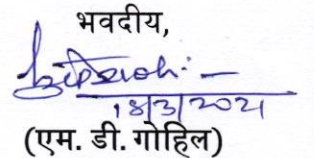 भवदीय,
18/3/2021
(एम. डी. गोहिल)